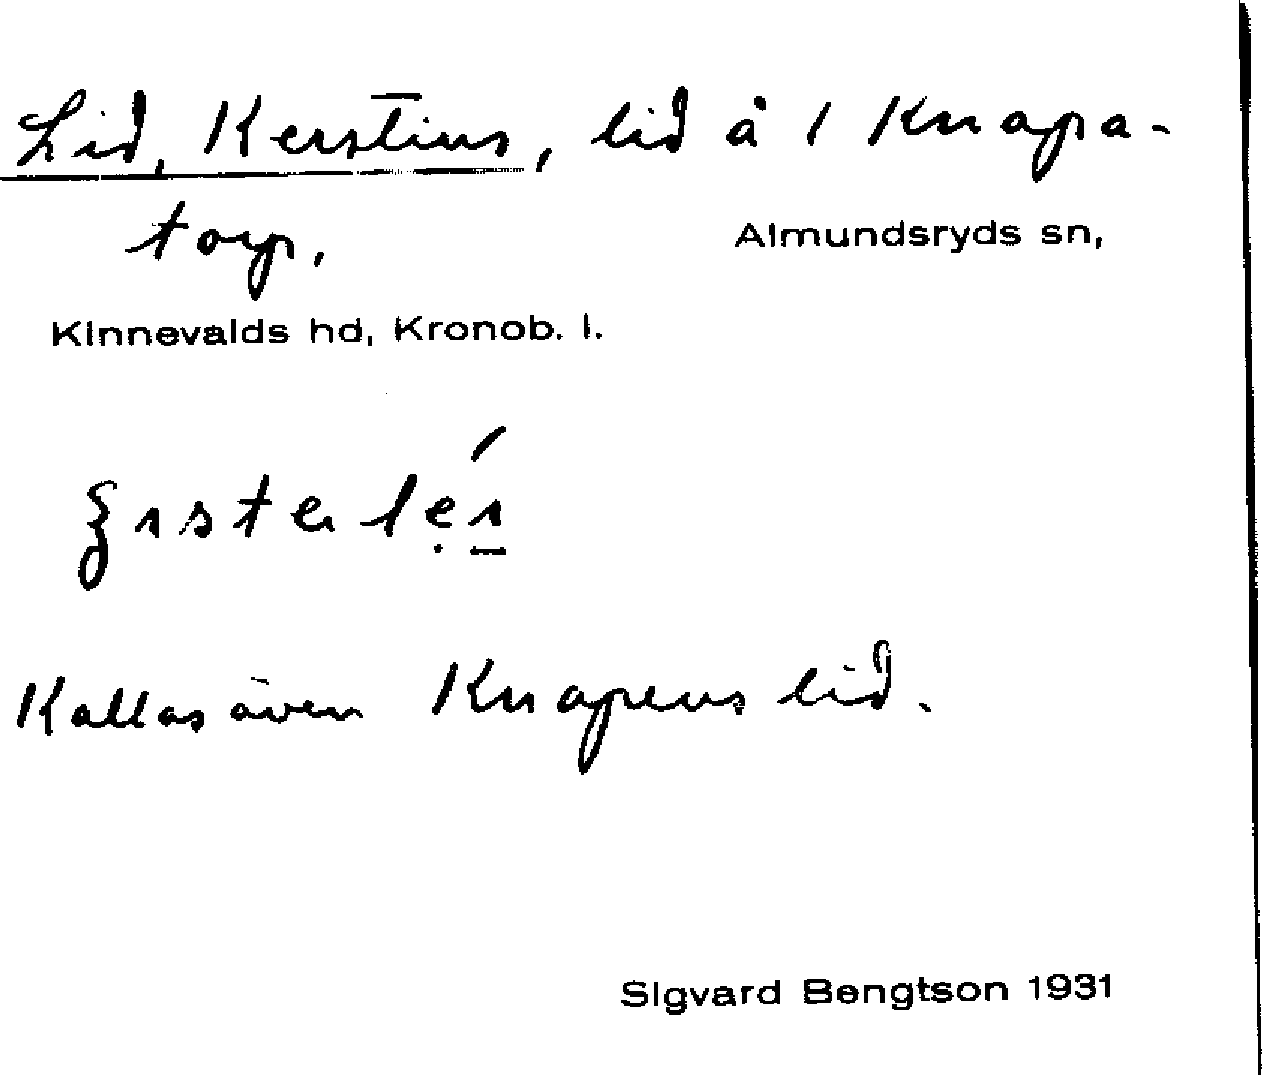 Lid, Kerstins, lid å 1 Knapa-
torp. Almundsryds sn,
Kinnevalds hd, Kronob. l.
Kallas även Knapens lid.
Sigvard Bengtson 1931